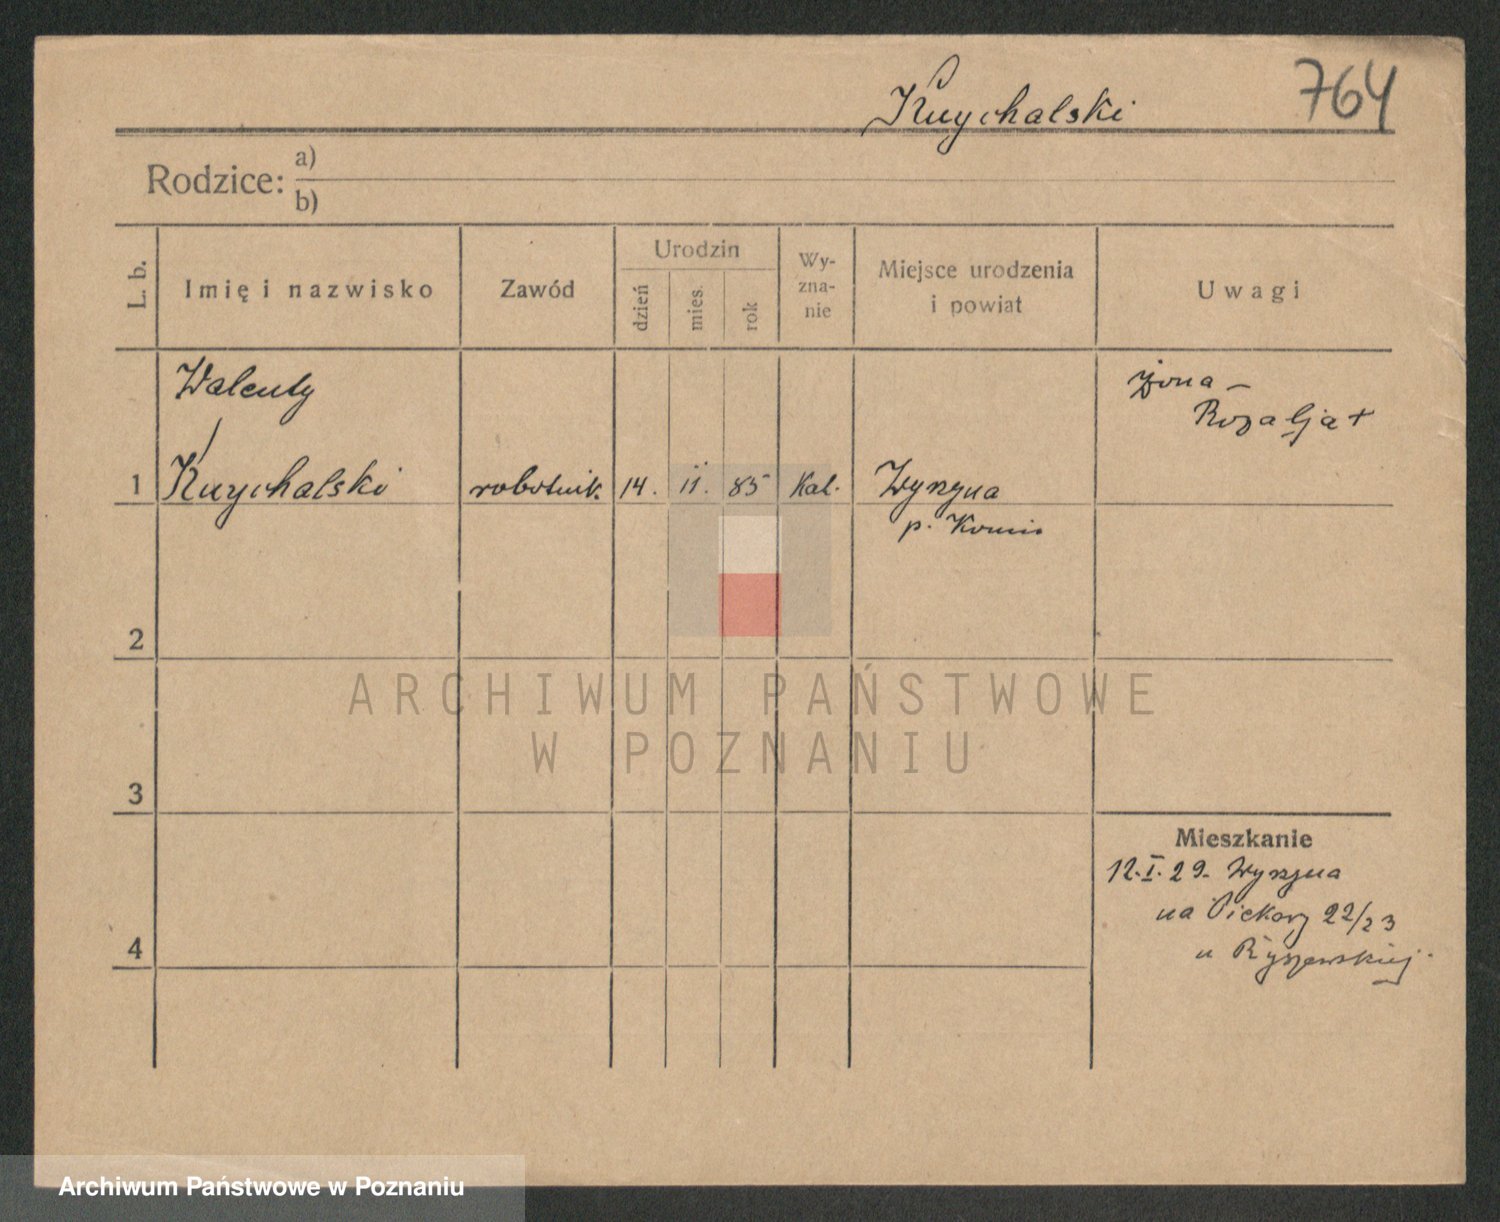 Kuychalski 764
Rodzice: a)
b)
L. b. Imię i nazwisko Zawód Urodzin dzień mies. rok Wy-
zna-
nie Miejsce urodzenia
i powiat Uwagi
Walenty
żona –
Rozalja +
1 Kuychalski robotnik 14. 11. 85 Kat.
p. Konin
2
ARCHIWUM PAŃSTWOWE
W POZNANIU
3
Mieszkanie
12.I.29.
na Piekary 22/23
u Ryszewskiej.
4
Archiwum Państwowe w Poznaniu